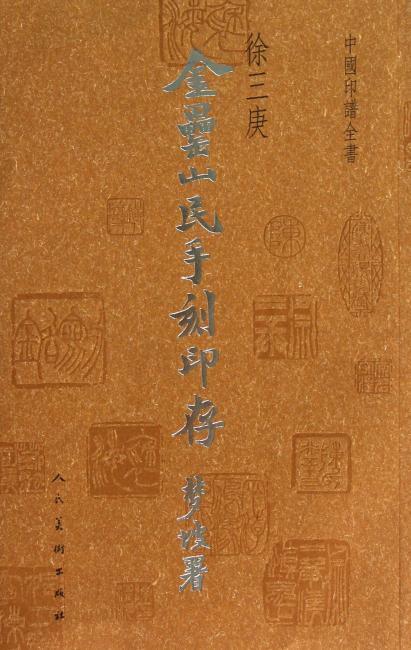 中國印譜全書
徐三庚
金罍山民手刻印存
梦坡署
人民美術出版社